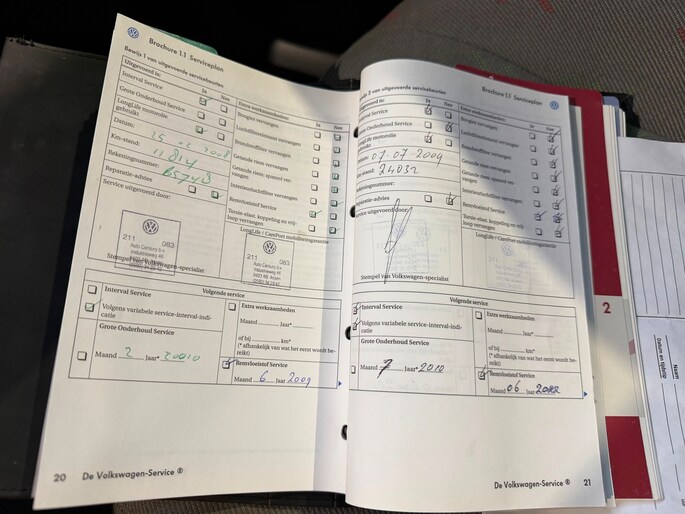 Brochure 1.1 Serviceplan
Bewijs 1 van uitgevoerde servicebeurten
Uitgevoerd is:
Ja
Nee
Interval Service
Grote Onderhoud Service
LongLife motorolie
gebruikt
Datum:
Km-stand:
Rekeningnummer:
Reparatie-advies
Service uitgevoerd door:
211 083
Auto Century b.v.
Stempel van Volkswagen-specialist
Extra werkzaamheden:
Ja
Nee
Bougies vervangen
Luchtfilterelement vervangen
Brandstoffilter vervangen
Getande riem vervangen
Getande riem, spanrol ver-
vangen
Interieurluchtfilter vervangen
Remvloeistof Service
Torsie-elast. koppeling en vrij-
loop vervangen
LongLife / CarePort mobiliteitsgarantie
211 083
Auto Century b.v.
Volgende service
Interval Service
Volgens variabele service-interval-indi-
catie
Grote Onderhoud Service
Maand 2 Jaar* 20010
Extra werkzaamheden
Maand Jaar*
of bij km*
(* afhankelijk van wat het eerst wordt be-
reikt)
Remvloeistof Service
Maand 6 Jaar 2009
20 De Volkswagen-Service ®
Brochure 1.1 Serviceplan
Bewijs 2 van uitgevoerde servicebeurten
Uitgevoerd is:
Ja
Nee
Interval Service
Grote Onderhoud Service
LongLife motorolie
gebruikt
Datum: 07-07-2009
Km-stand: 24032
Rekeningnummer:
Reparatie-advies
Service uitgevoerd door:
Stempel van Volkswagen-specialist
Extra werkzaamheden:
Ja
Nee
Bougies vervangen
Luchtfilterelement vervangen
Brandstoffilter vervangen
Getande riem vervangen
Getande riem, spanrol ver-
vangen
Interieurluchtfilter vervangen
Remvloeistof Service
Torsie-elast. koppeling en vrij-
loop vervangen
Volgende service
Interval Service
Volgens variabele service-interval-indi-
catie
Grote Onderhoud Service
Maand 7 Jaar* 2010
Extra werkzaamheden
Maand Jaar*
of bij km*
(* afhankelijk van wat het eerst wordt be-
reikt)
Remvloeistof Service
Maand 06 Jaar
De Volkswagen-Service ® 21
2
Naam